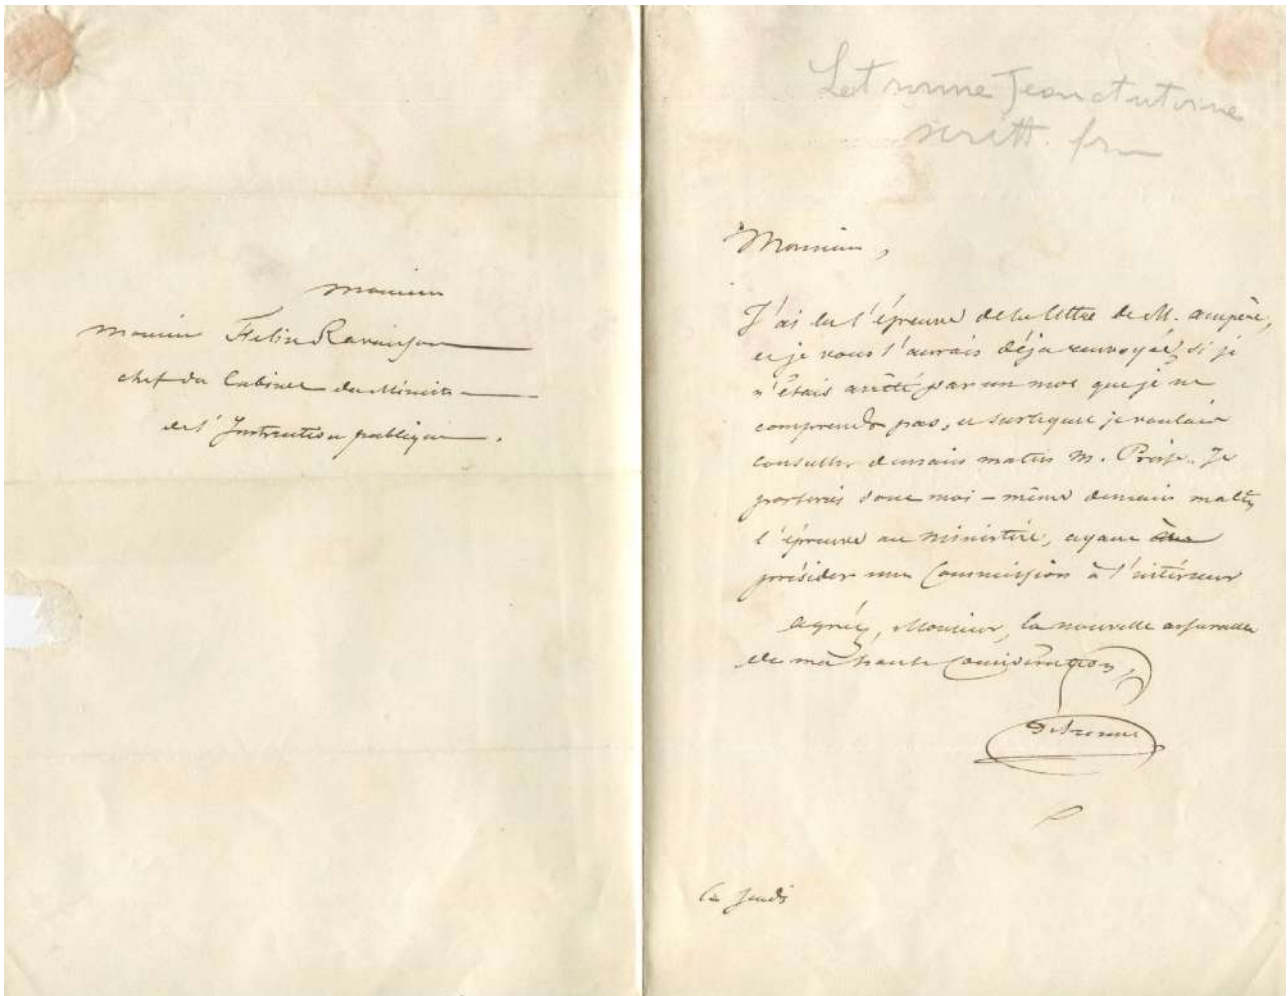 Monsieur
Monsieur Félix Ravaisson
chef du Cabinet du Ministre
de l'Instruction publique.
Letronne Jean Antoine
scritt. fr
Monsieur,
J'ai lu l'épreuve de la lettre de M. ampère,
et je vous l'aurais déja renvoyée, si je
n'étais arrêté par un mot que je ne
comprends pas, et sur lequel je voulais
consulter demain matin M.
Je
porterai donc moi-même demain matin
l'épreuve au ministère, ayant
présider une Commission à l'intérieur
agréez, Monsieur, la nouvelle assurance
de ma haute Considération,
Letronne
Ce Jeudi